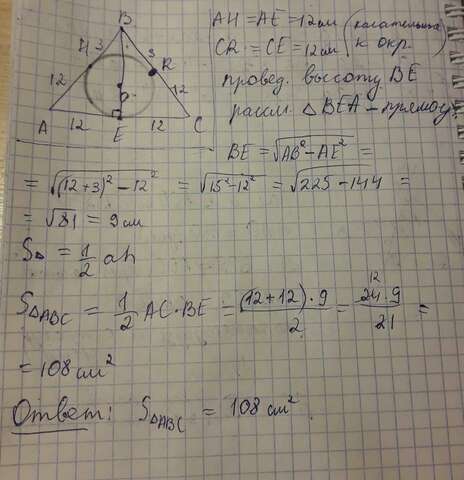 B
H 3 3 R
12 12
A 12 E 12 C
AH = AE = 12 см (касательные
CR = CE = 12 см к окр.)
провед. высоту BE
рассм. △ BEA – прямоуг.
BE = √AB² − AE² =
= √(12 + 3)² − 12² = √15² − 12² = √225 − 144 =
= √81 = 9 см
S△ = 1/2 ah
S△ABC = 1/2 AC · BE = (12 + 12) · 9 / 2 = 12 24 · 9 / 21 =
= 108 см²
Ответ: S△ABC = 108 см²